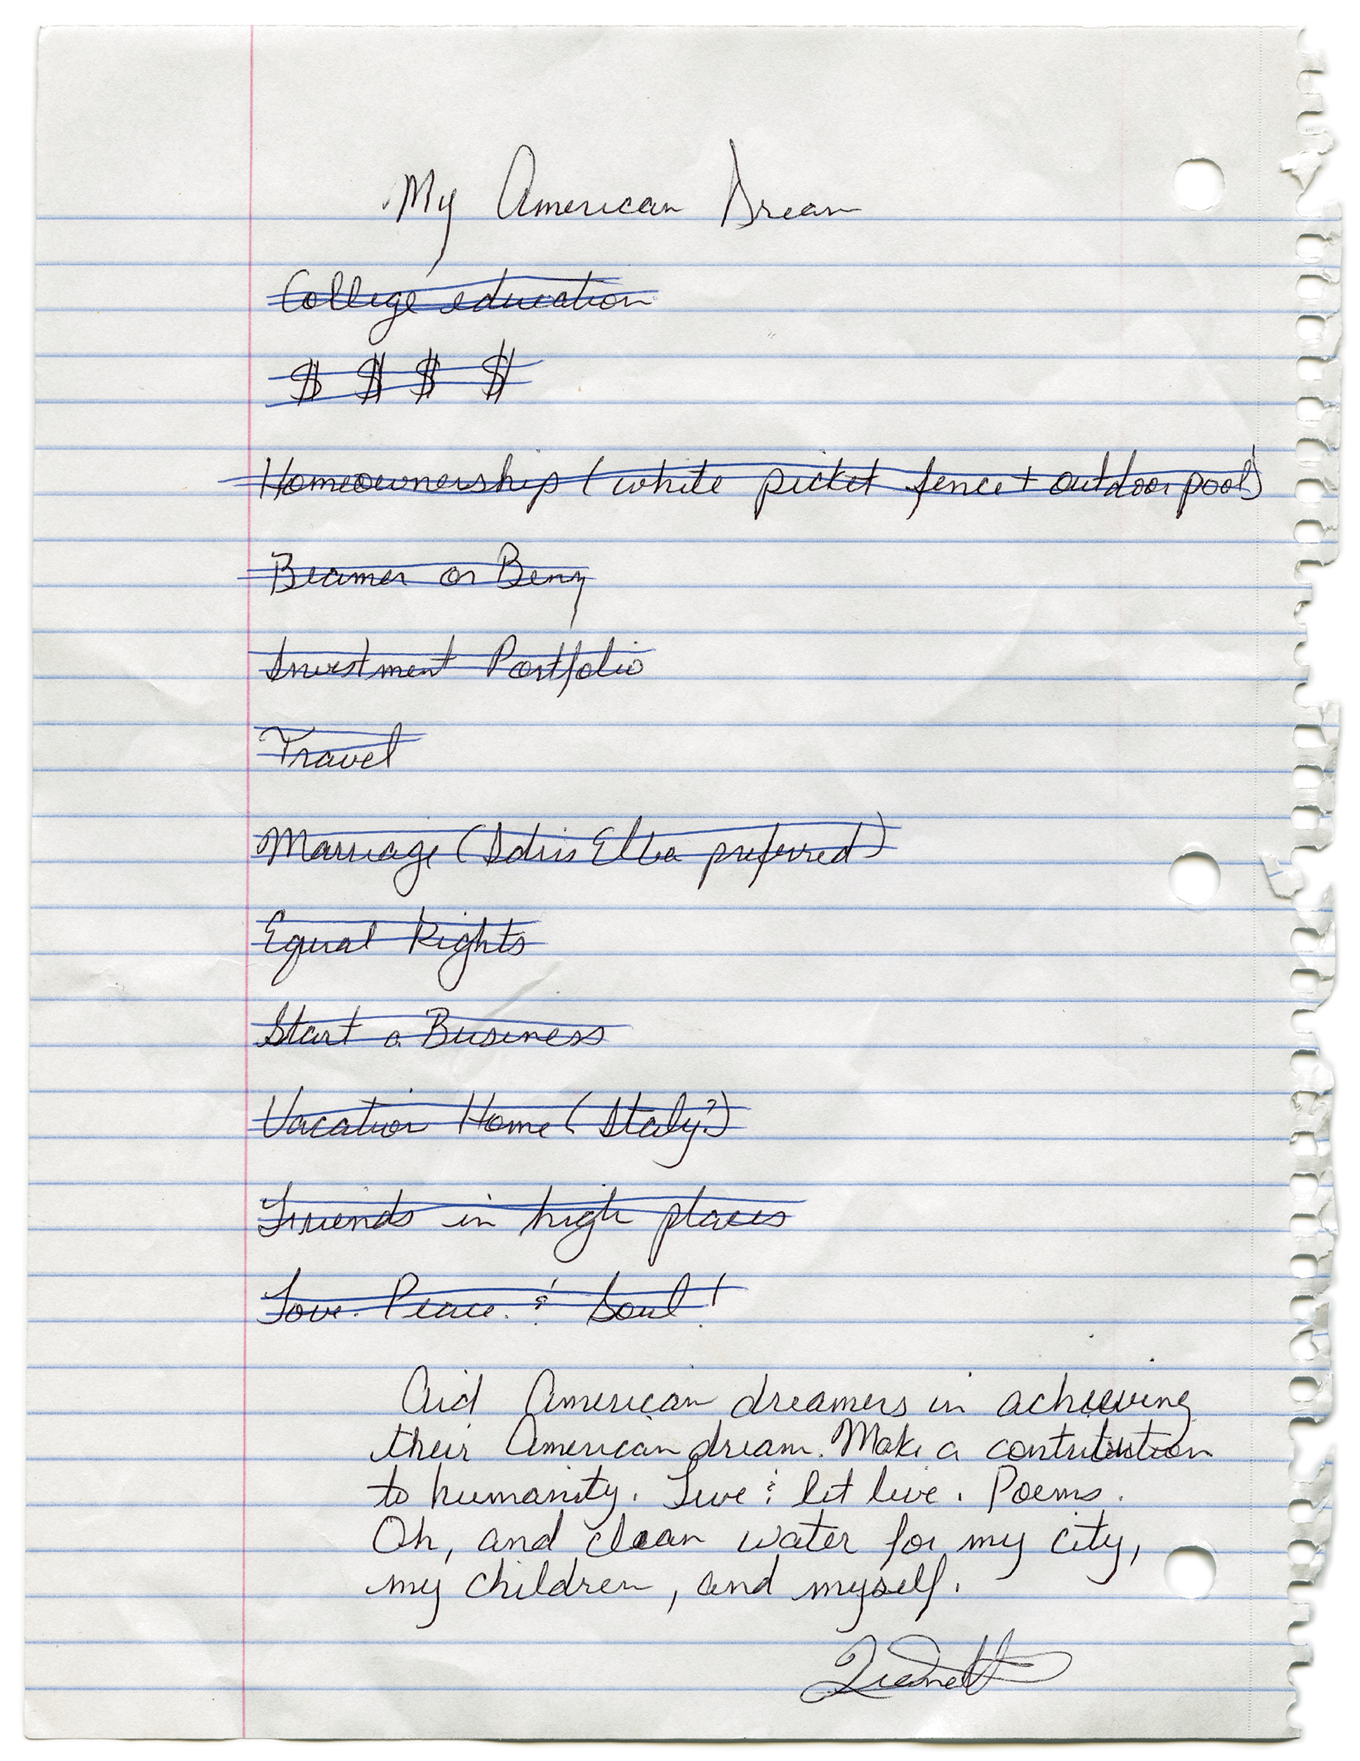 My American Dream
College education
$ $ $ $
Homeownership (white picket fence + outdoor pool)
Beamer or Benz
Investment Portfolio
Travel
Marriage (Idris Elba preferred)
Equal Rights
Start a Business
Vacation Home (Italy?)
Friends in high places
Love. Peace. & Soul!
Aid American dreamers in achieving
their American dream. Make a contribution
to humanity. Live & let live. Poems.
Oh, and clean water for my city,
my children, and myself.